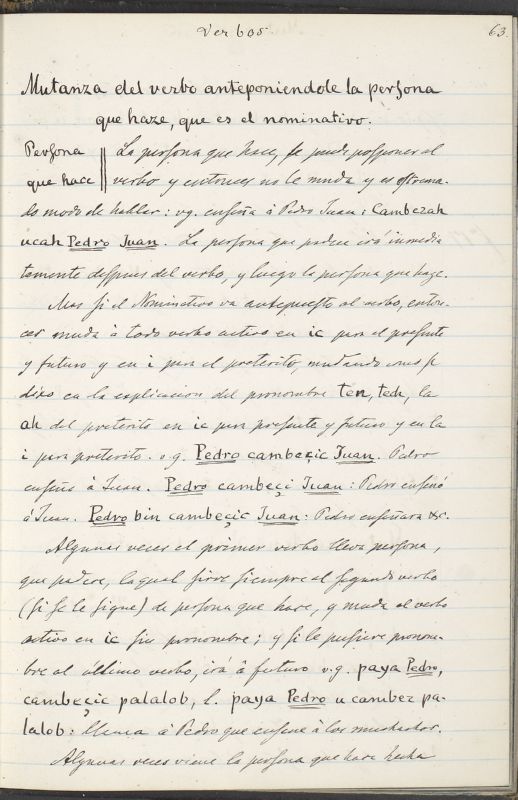 Verbos
63.
Mutanza del verbo anteponiendole la persona
que haze, que es el nominativo.
Persona
que hace
La persona que hace, se puede posponer al
verbo y entonces no le muda y es estrema-
do modo de hablar: vg. enseña â Pedro Juan: Cambezah
ucah Pedro Juan. La persona que padece irá inmedia
tamente despues del verbo, y luego la persona que haze.
Mas si el Nominativo va antepuesto al verbo, enton-
ces muda â todo verbo activo en ic para el presente
y futuro y en i para el preterito, mudando como se
dixo en la explicacion del pronombre ten, tech, la
ah del preterito en ic para presente y futuro y en la
i para preterito. v.g. Pedro cambeçic Juan. Pedro
enseña â Juan. Pedro cambeçi Juan: Pedro enseñó
â Juan. Pedro bin cambeçic Juan: Pedro enseñara &c.
Algunas veces el primer verbo lleva persona,
que padece, la qual sirve siempre al segundo verbo
(si se le sigue) de persona que hace, y muda el verbo
activo en ic sin pronombre; y si le pusiere pronom-
bre al último verbo, irá â futuro v.g. paya Pedro,
cambeçic palalob, l. paya Pedro u cambez pa-
lalob: llama â Pedro que enseñe â los muchachos.
Algunas veces viene la persona que hace hecha